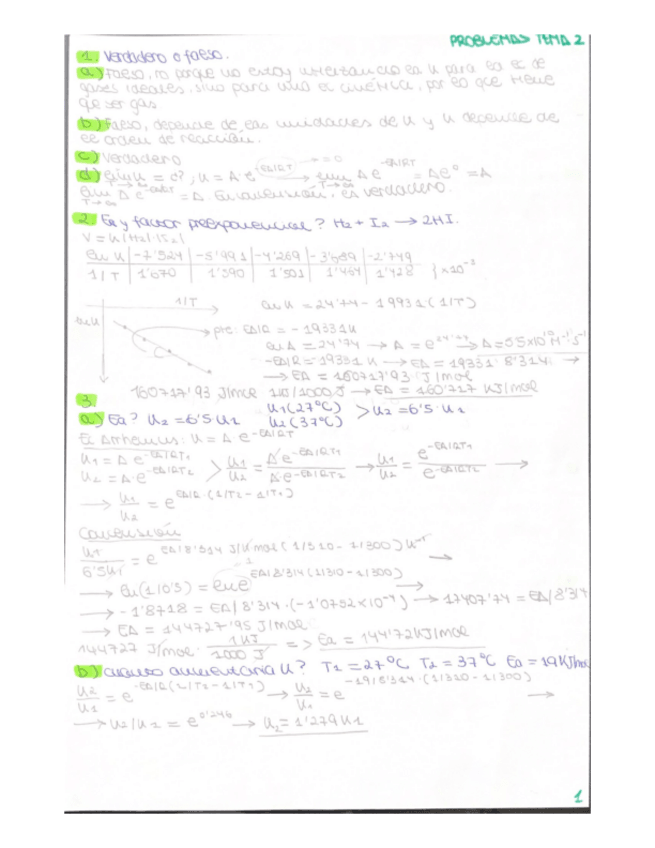 PROBLEMAS TEMA 2
1. Verdadero o falso.
a) Falso, no porque no estoy para la ec de
gases ideales, sino para una ec cinética, por lo que tiene
que ser gas.
b) Falso, depende de las unidades de k y k depende de
el orden de reacción.
c) Verdadero
d) lim k = c?, k = A·e^(-EA/RT) → = 0 lim A e^(-EA/RT) = A e⁰ = A
T→∞ = A. En conclusión, es verdadero.
2. Ea y factor preexponencial? H₂ + I₂ → 2HI.
V = k[H₂][I₂]
ln k | -7'524 | -5'991 | -4'269 | -3'589 | -2'749
1/T | 1'670 | 1'590 | 1'501 | 1'464 | 1'428 } x10⁻³
1/T
ln k
ln k = 24'74 - 19931(1/T)
pte: EA/R = -19331k
ln A = 24'74 → A = e^(24'74) → A = 5'5x10¹⁰ M⁻¹s⁻¹
-EA/R = 19331 k → EA = 19331·8'314 →
→ EA = 160717'93 J/mol
160717'93 J/mol 1kJ/1000J → EA = 160'717 kJ/mol
3.
a) Ea? k₂ = 6'5 k₁ k₁(27°C) k₂(37°C) > k₂ = 6'5·k₁
Ec Arrhenius: k = A·e^(-EA/RT)
k₁ = A e^(-EA/RT₁)
k₂ = A·e^(-EA/RT₂) > k₁/k₂ = A e^(-EA/RT₁) / A·e^(-EA/RT₂) → k₁/k₂ = e^(-EA/RT₁) / e^(-EA/RT₂) →
→ k₁/k₂ = e^(EA/R·(1/T₂-1/T₁))
Conversión
k₁/6'5k₁ = e^(EA/8'314 J/k mol (1/310-1/300) k⁻¹) →
→ ln(1/6'5) = ln e^(EA/8'314(1/310-1/300)) →
→ -1'8718 = EA/8'314·(-1'0752x10⁻⁴) → 17407'74 = EA/8'314
→ EA = 144727'95 J/mol
144727 J/mol· 1kJ/1000 J => Ea = 144'72kJ/mol
b) cuanto aumentaría k? T₁ = 27°C T₂ = 37°C Ea = 19 kJ/mol
k₂/k₁ = e^(-EA/R(1/T₂-1/T₁)) → k₂/k₁ = e^(-19/8'314·(1/310-1/300)) →
→ k₂/k₁ = e^(0'246) → k₂ = 1'279k₁
1